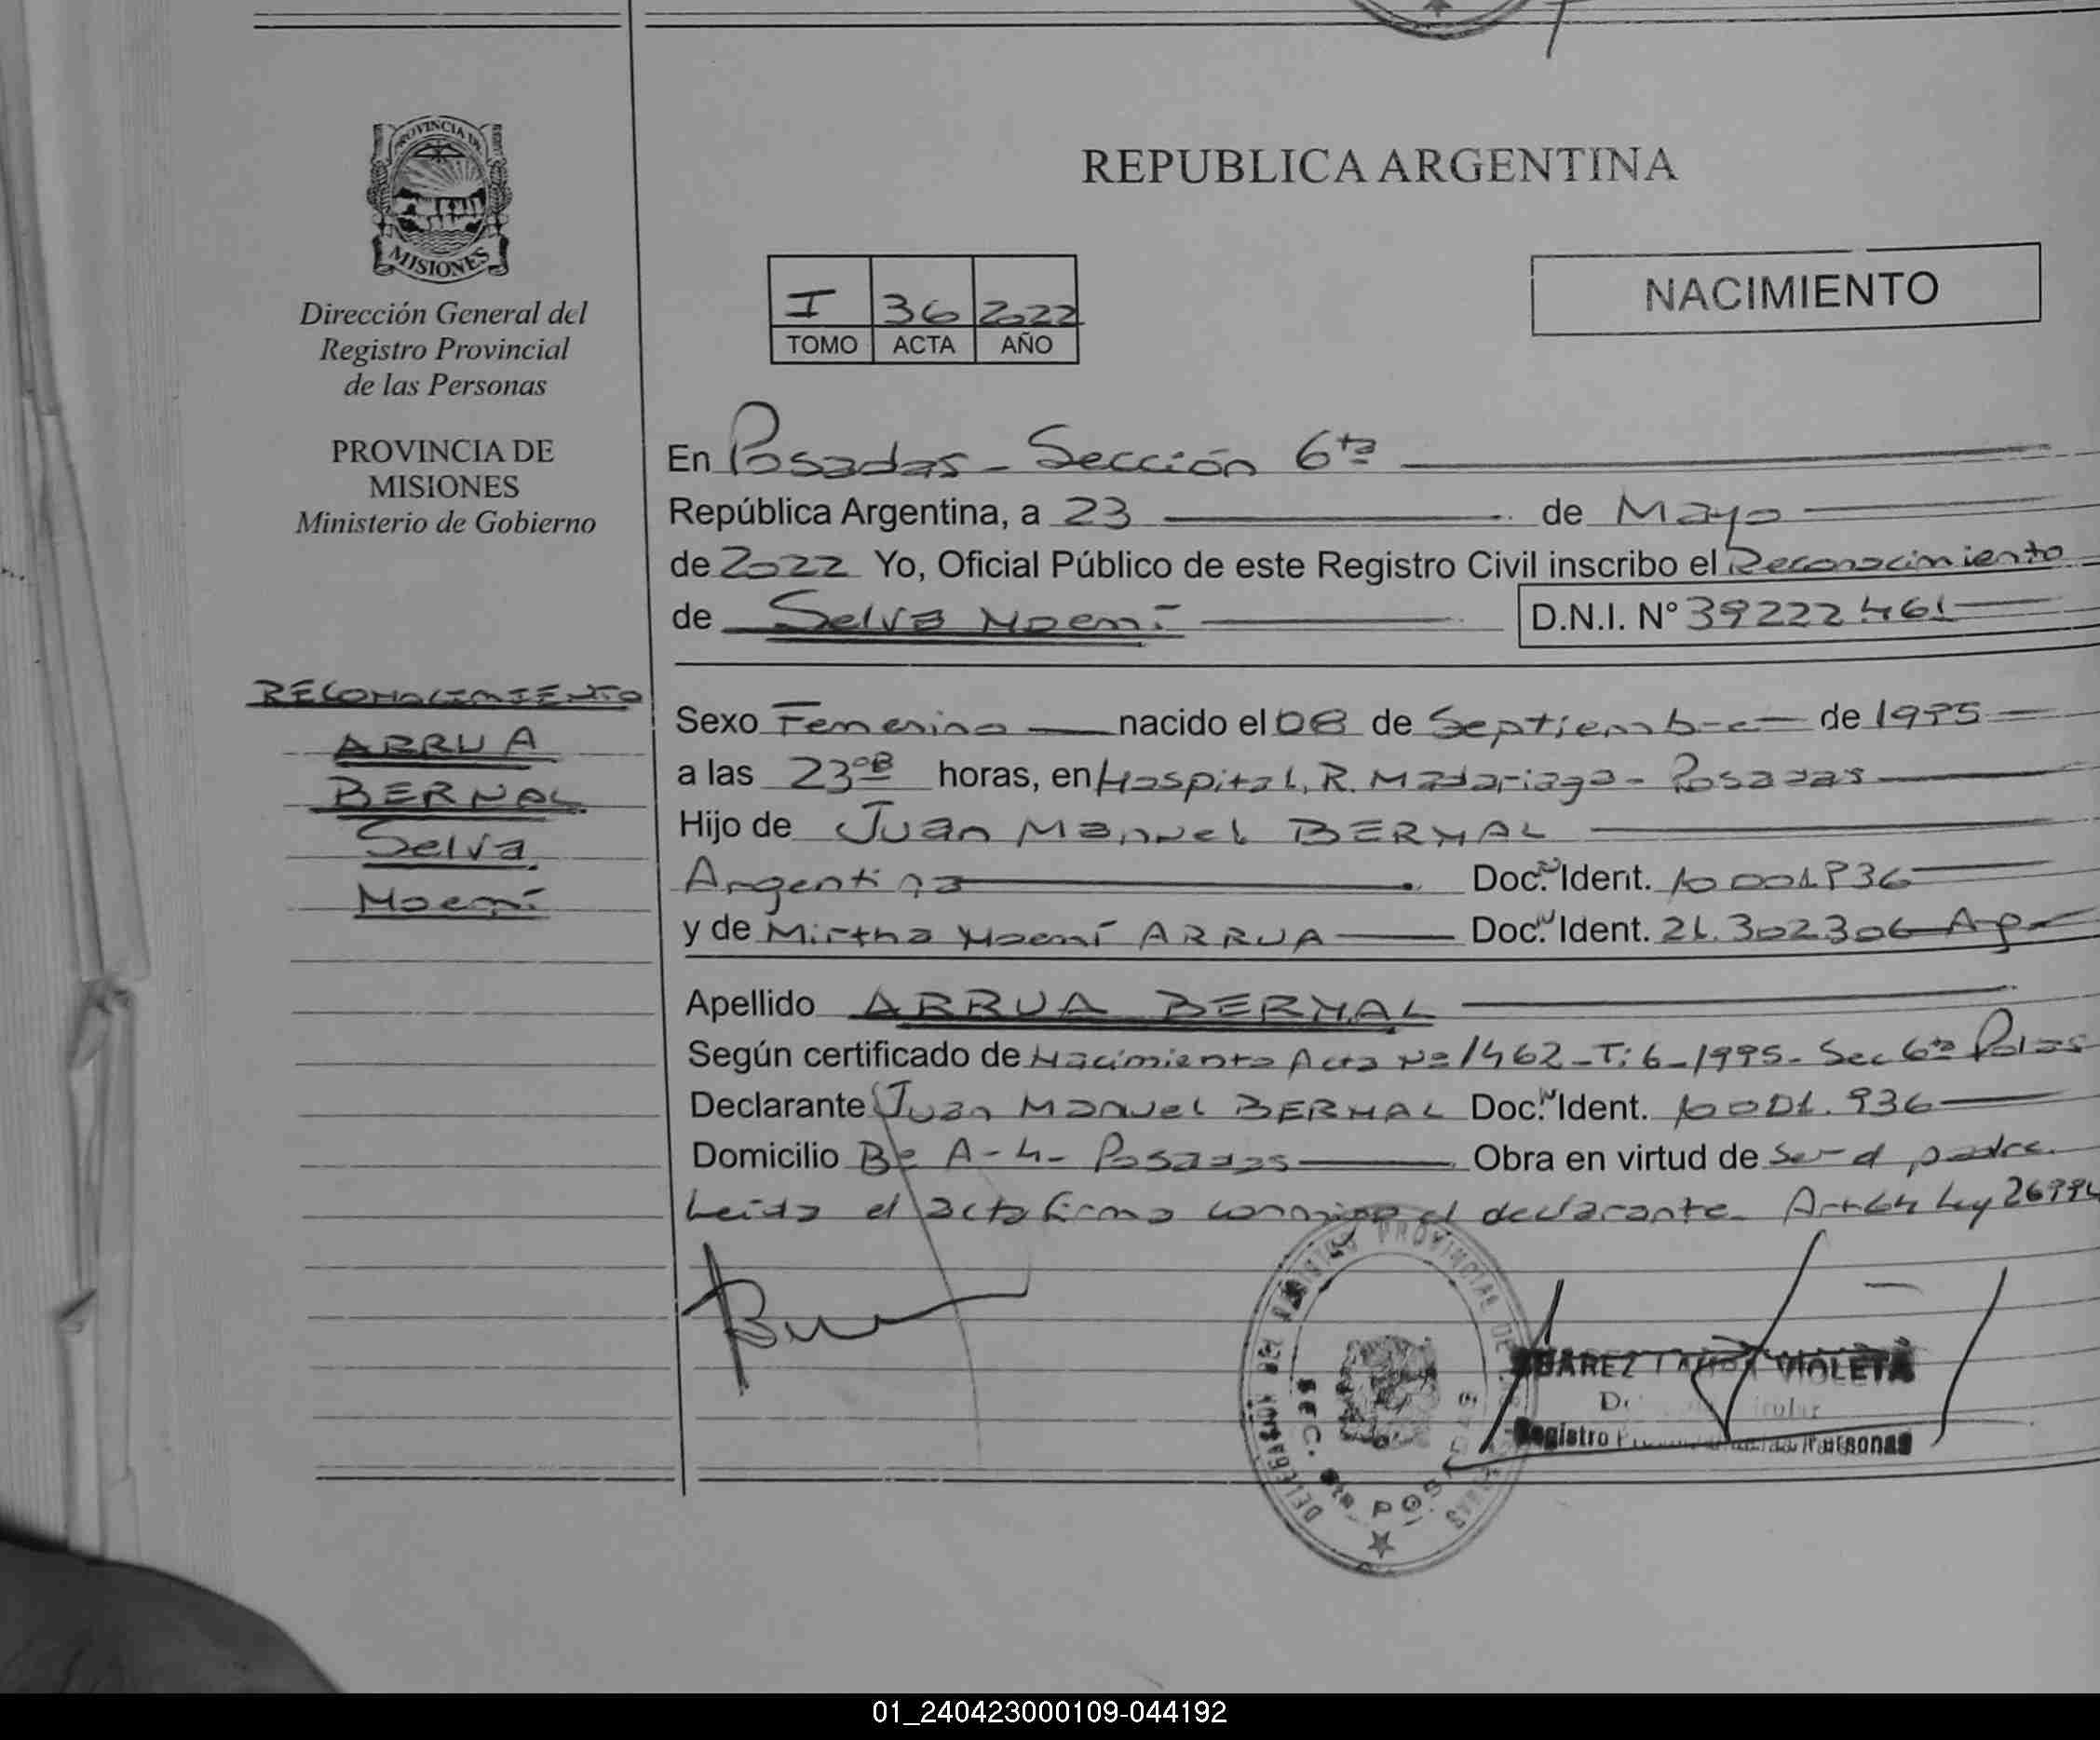 PROVINCIA DE
MISIONES
Dirección General del
Registro Provincial
de las Personas
PROVINCIA DE
MISIONES
Ministerio de Gobierno
RECONOCIMIENTO
ARRUA
BERNAL
Selva
Noemí
REPUBLICA ARGENTINA
I 36 2022
TOMO ACTA AÑO
NACIMIENTO
En Posadas - Sección 6ta
República Argentina, a 23 de Mayo
de 2022 Yo, Oficial Público de este Registro Civil inscribo el Reconocimiento
de Selva Noemí D.N.I. N° 39222.461
Sexo Femenino nacido el 08 de Septiembre de 1995
a las 23 horas, en Hospital. R. Madariaga - Posadas
Hijo de Juan Manuel BERNAL
Argentina Doc. Ident. 10001936
y de Mirtha Noemí ARRUA Doc. Ident. 21.302306
Apellido ARRUA BERNAL
Según certificado de Nacimiento Acta Nº 1462-T:6-1995- Sec 6ta
Declarante Juan Manuel BERNAL Doc. Ident. 10001.936
Domicilio Bº A-4- Posadas Obra en virtud de ser el padre.
Leida el acta firma conmigo el declarante. Art 64 Ley 26994
PROVINCIAL DE
SEC. 6ta POSADAS
SUAREZ VIOLETA
Registro Personas
01_240423000109-044192